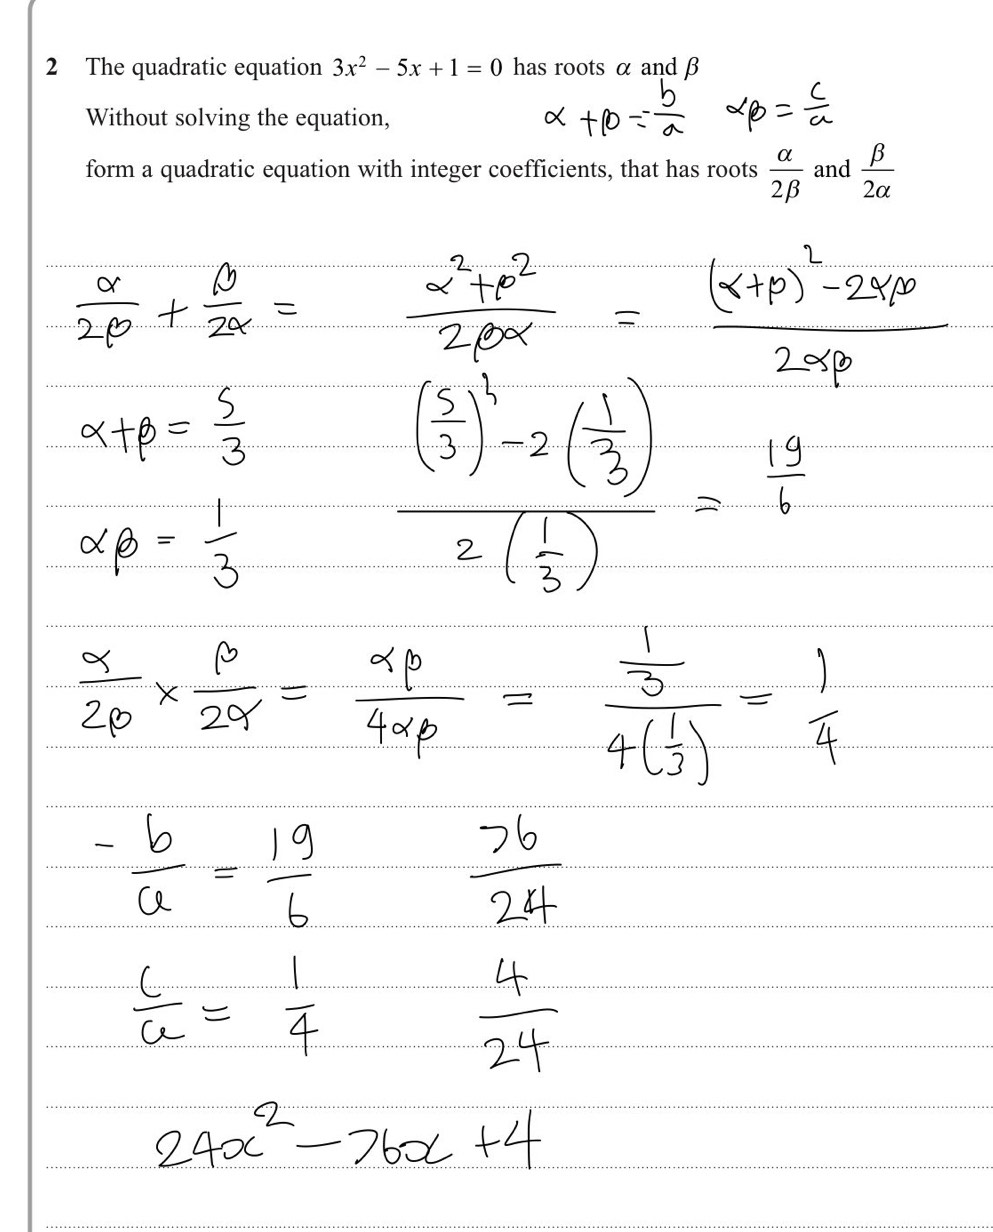 2 The quadratic equation 3x² − 5x + 1 = 0 has roots α and β
Without solving the equation, α + β = -b/a αβ = c/a
form a quadratic equation with integer coefficients, that has roots α/2β and β/2α
α/2β + β/2α = (α² + β²)/2βα = ((α+β)² − 2αβ)/2αβ
α+β = 5/3 ((5/3)² − 2(1/3))/(2(1/3)) = 19/6
αβ = 1/3
α/2β × β/2α = αβ/4αβ = (1/3)/(4(1/3)) = 1/4
-b/a = 19/6 76/24
c/a = 1/4 4/24
24x² − 76x + 4